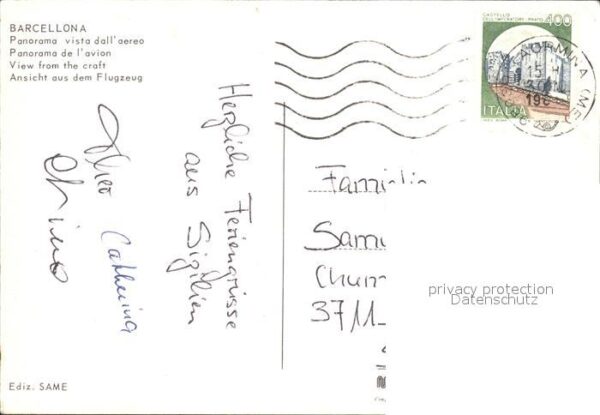 BARCELLONA
Panorama vista dall'aereo
Panorama de l'avion
View from the craft
Ansicht aus dem Flugzeug
Herzliche Feriengrüsse
aus Sizilien
Catherina
CASTELLO
DELL'IMPERATORE - PRATO
400
ITALIA
TAORMINA (ME)
15
198
Familie
Sam
3711
privacy protection
Datenschutz
Ediz. SAME